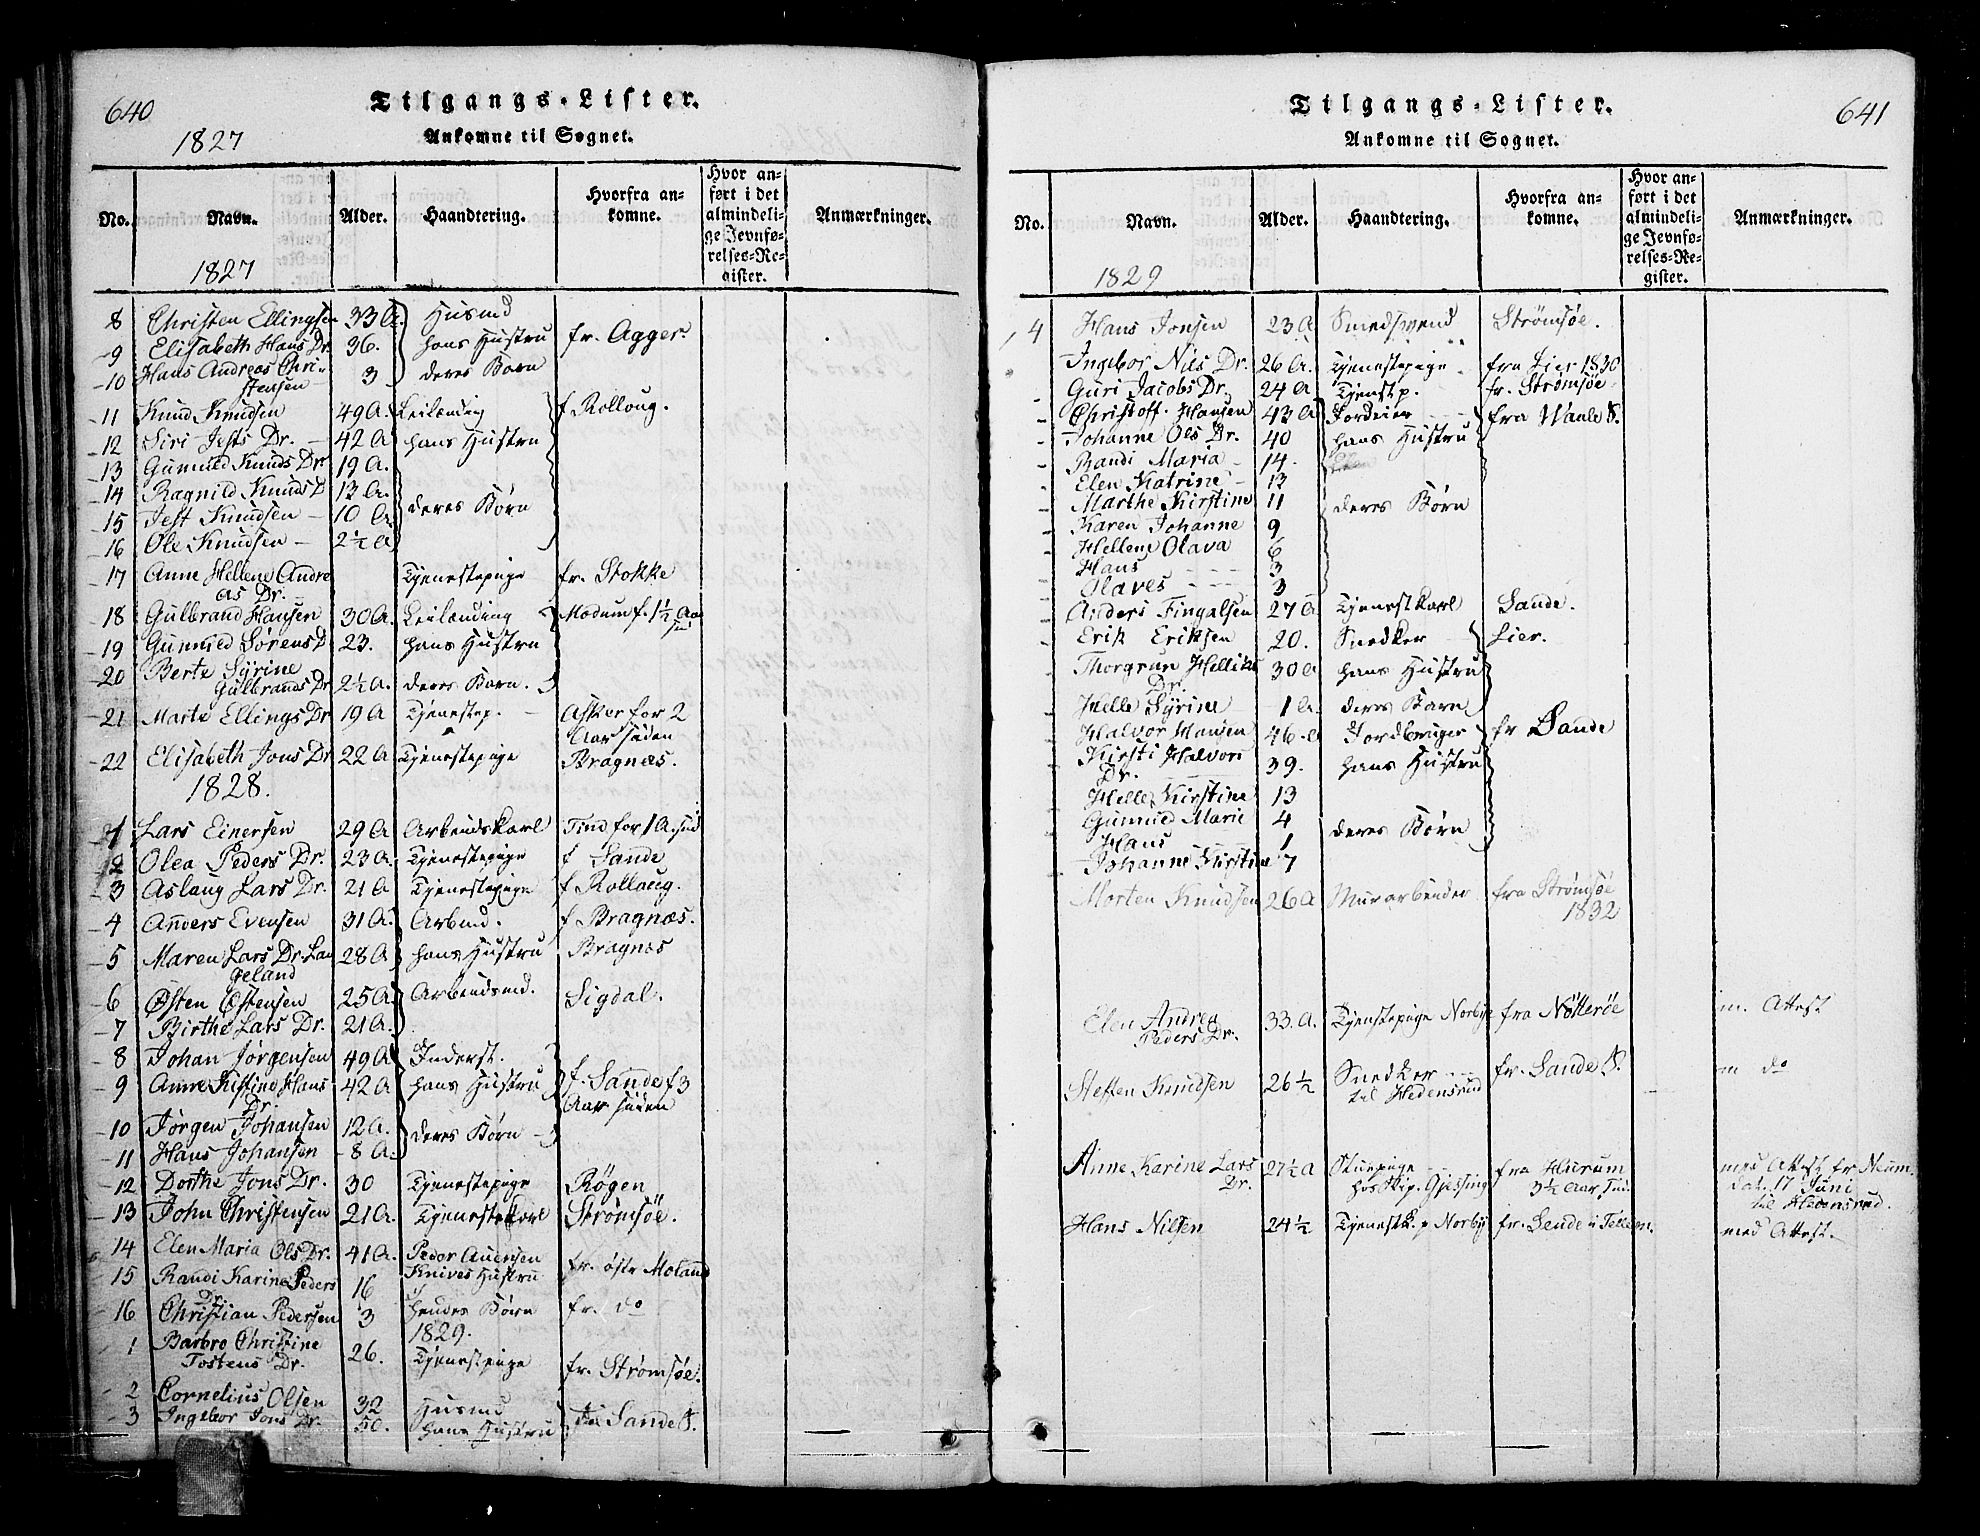 640
Tilgangs-Lister.
1827
Ankomne til Sognet.
No. Navn. Alder. Haandtering. Hvorfra ankomne. Hvor anført i det almindelige Jevnførelses-Register. Anmærkninger.
1827
8 Christen Ellingsen 33 A. Husmd fr. Agger.
9 Elisabeth Hans Dr. 36. hans Hustru
10 Hans Andreas Christensen 3 deres Barn
11 Knud Knudsen 49 A. Leilænding f Rolloug.
12 Siri Jests Dr. 42 A hans Hustru
13 Gunnild Knuds Dr 19 A.
14 Ragnild Knuds D 13 A. deres Børn
15 Jest Knudsen 10 A
16 Ole Knudsen 2½ A
17 Anne Hellene Andreas Dr. Tjenestepige fr. Stokke
18 Gulbrand Hansen 30 A. Leilænding Modum f. 1½ Aar
19 Gunnild Sørens D 23. hans Hustru
20 Berte Syrine Gulbrands Dr 2½ A. deres Barn.
21 Marte Ellings Dr 19 A Tjenestep. Asker for 2 Aar siden
22 Elisabeth Jons Dr 22 A Tjenestepige Bragnæs.
1828.
1 Lars Einersen 29 A Arbeidskarl Tind for 1 A. sid
2 Olea Peders Dr. 23 A. Tjenestepige f Sande
3 Aslaug Lars Dr. 21 A Tjenestepige f Rolloug.
4 Anders Evensen 31 A. Arbmd. f Bragnæs.
5 Maren Lars Dr. Langeland 28 A hans Hustru Bragnæs
6 Østen Østensen 25 A. Arbeidsmd. Sigdal.
7 Birthe Lars Dr. 21 A.
8 Johan Jørgensen 49 A Inderst. f. Sande f 3 Aar siden
9 Anne Kistine Hans Dr. 42 A hans Hustru
10 Jørgen Johansen 12 A. deres Børn
11 Hans Johansen 8 A.
12 Dorthe Jons Dr. 30 Tjenestepige Røgen
13 John Christensen 21 A. Tjenestekarl Strømsöe.
14 Elen Maria Ols Dr. 41 A. Peder Knives Hustru fr. östr Moland
15 Randi Karine Peders Dr. 16
16 Christian Pedersen 3 hendes Børn fr. do
1829.
1 Barbro Christine Tostens Dr. 26. Tjenestepige fr. Strømsøe.
2 Cornelius Olsen 32 Husmd Sande P.
3 Ingebor Jons Dr. 50. hans Hustru
641
Tilgangs-Lister.
Ankomne til Sognet.
No. Navn. Alder. Haandtering. Hvorfra ankomne. Hvor anført i det almindelige Jevnførelses-Register. Anmærkninger.
1829
4 Hans Jonsen 23 A Smedsvend Strømsøe.
Ingebor Nils Dr. 26 A. Tjenestepige fra Lier 1830
Guri Jacobs Dr. 24 A Tjenstp. fr. Strømsøe
Christoff. Hansen 43 A Jordeier fra Waale P.
Johanne Ols Dr. 40 hans Hustru
Randi Maria 14.
Elen Katrine 13
Marthe Kirstine 11 deres Børn
Karen Johanne 9
Hellene Olava 6
Hans 3
Olaves 3
Anders Fingalsen 27 A Tjenestkarl Sande.
Erik Eriksen 20. Snedker Lier.
Thorgrun Helliks Dr. 30 A hans Hustru
Helle Syrine 1 A. deres Barn
Halvor Hansen 46 Jordbruger fr Sande
Kirsti Halvors Dr. 39. hans Hustru
Helle Kirstine 13
Gunnild Marie 4 deres Børn
Hans 1
Johanne Kirstine 7
Morten Knudsen 26 A Murarbeider fra Strømsöe 1832
Elen Andrea Peders Dr. 33. A. Tjenstepige Norbye fra Nøtterøe m. Attest
Steffen Knudsen 26½ Snedker til Hedensrud fr. Sande P. m do
Anne Karine Lars Dr. 27½ A Stuepige hos Skip. Gjessing fra Hurum 3½ Aar sid. med Attest fr Neum. dat. 17 Juni til Hedensrud.
Hans Nilsen 24½ Tjenestk. p Norby fr. Sende i Tellem. med Attest.